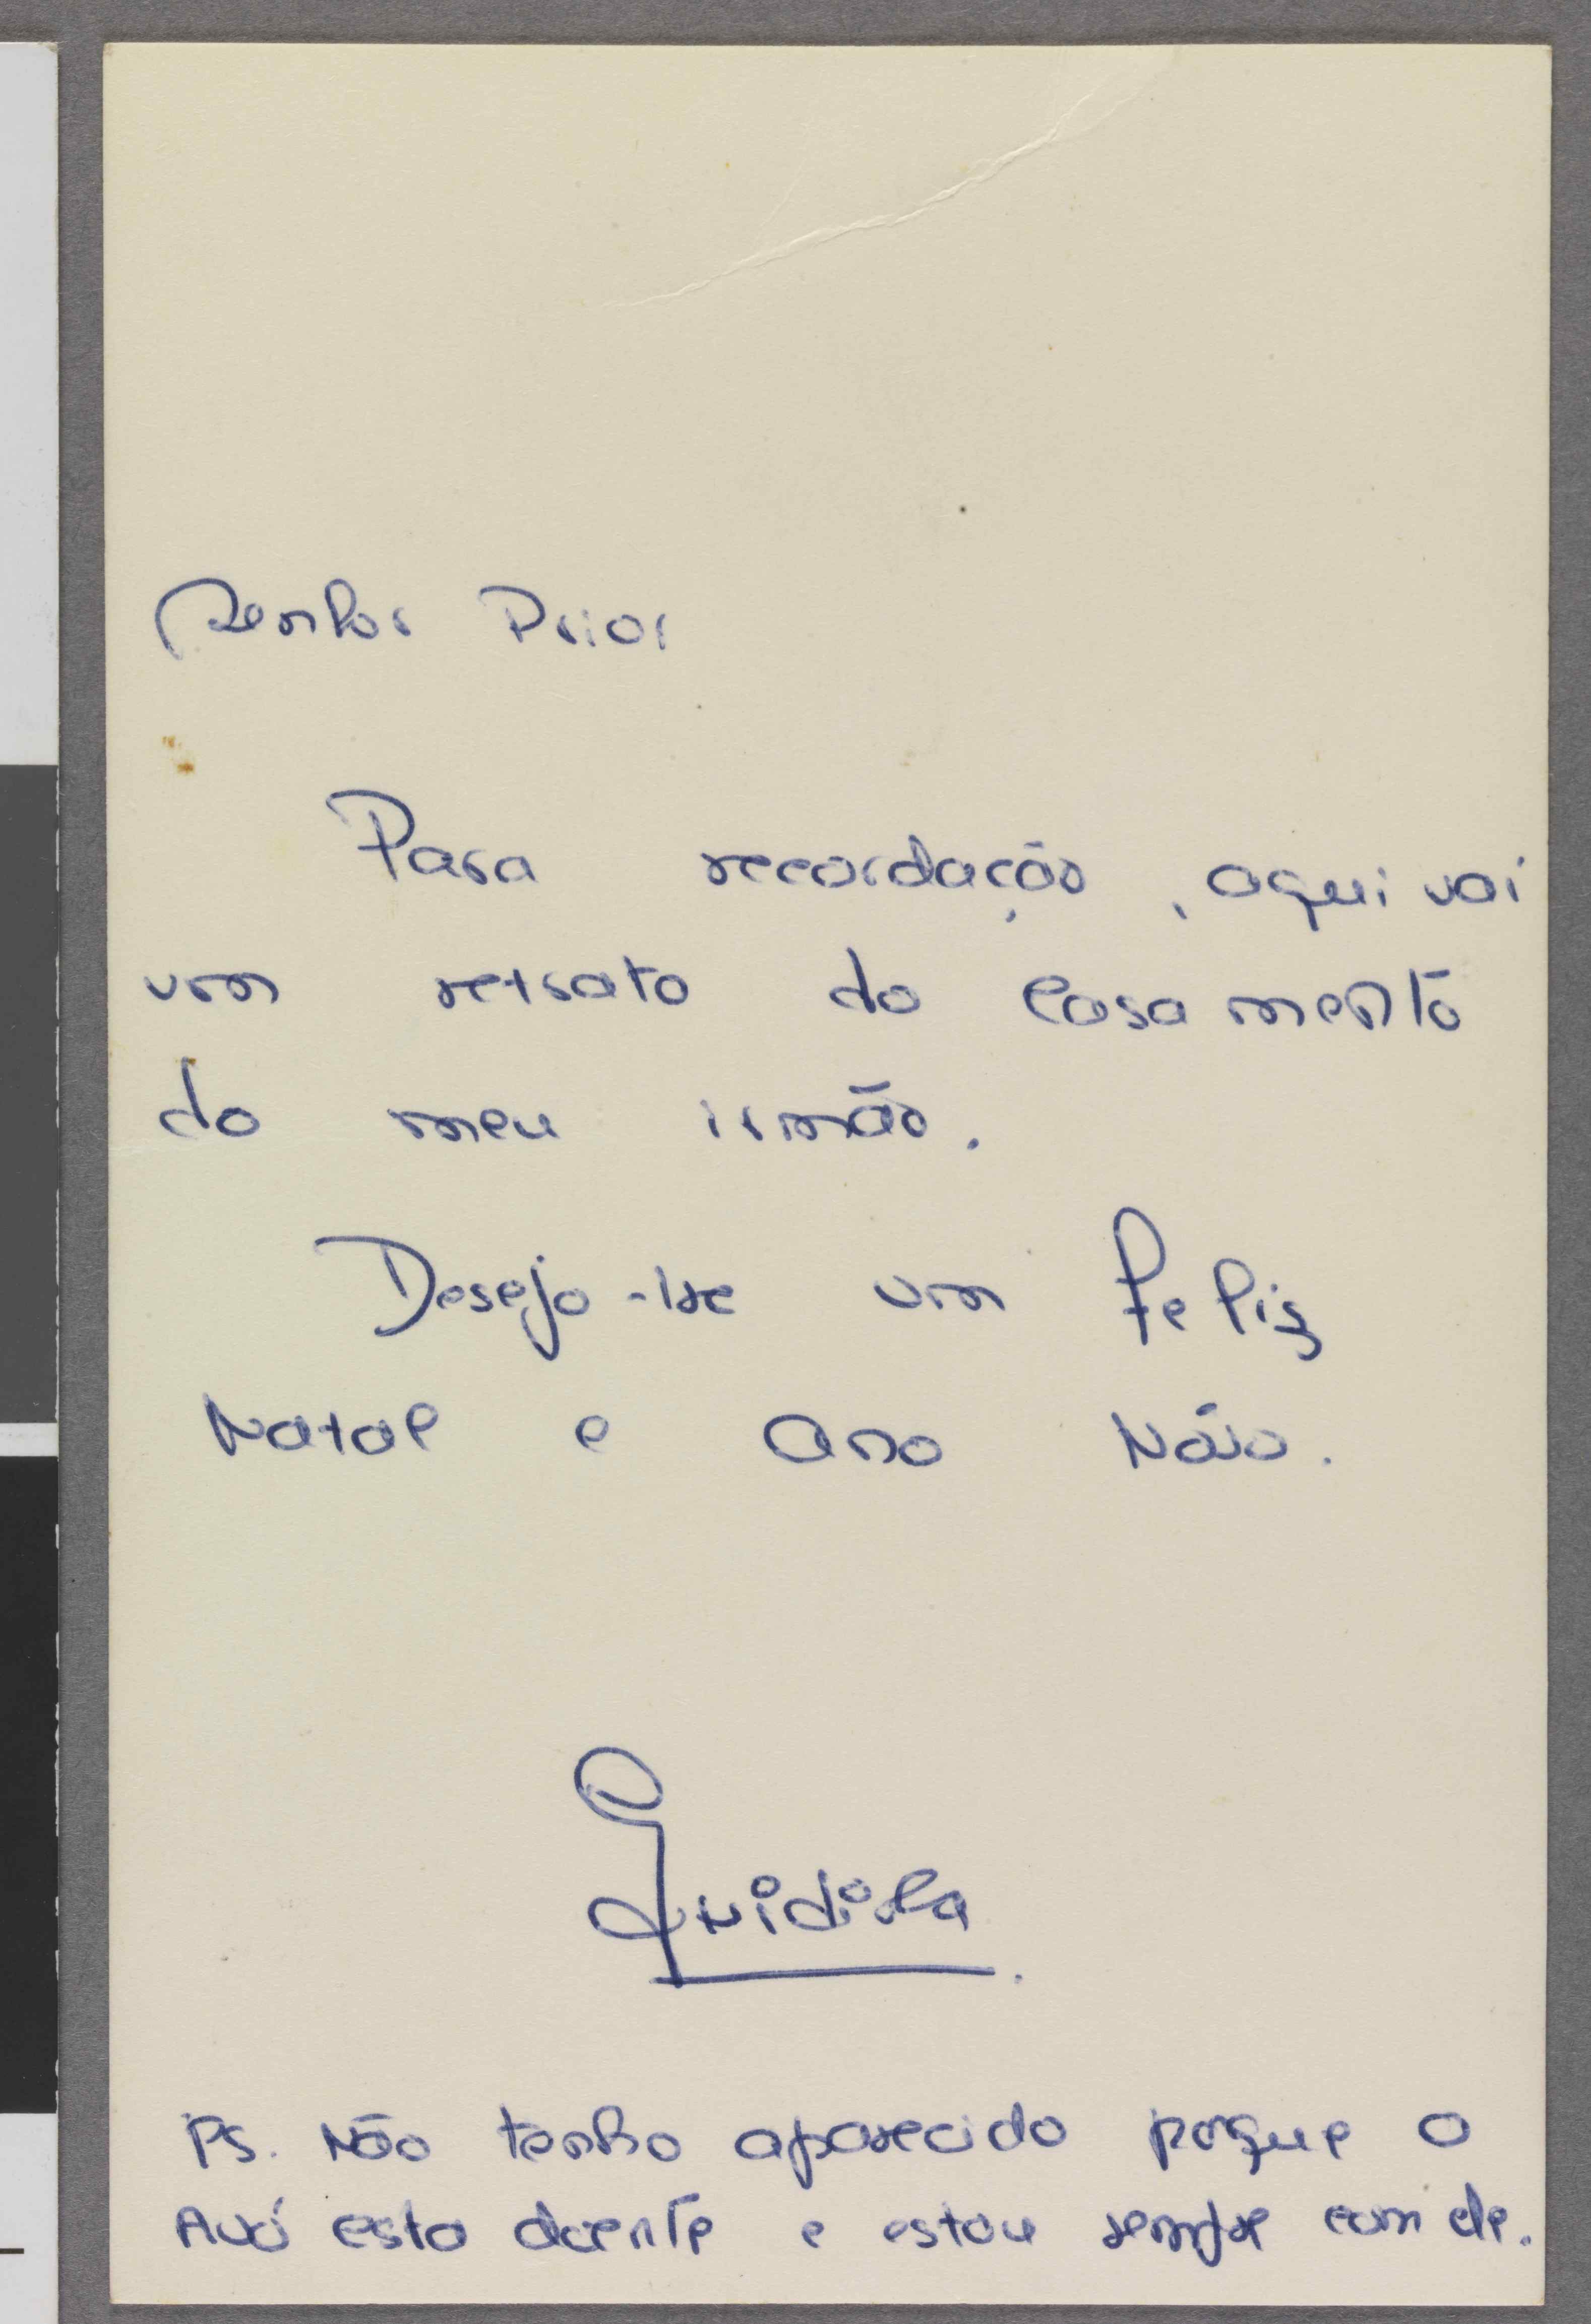 Senhor Prior
Para recordação, aqui vai
um retrato do casamento
do meu irmão.
Desejo-lhe um feliz
Natal e Ano Nôvo.
PS. Não tenho aparecido porque o
Avô esta doente e estou sempre com ele.